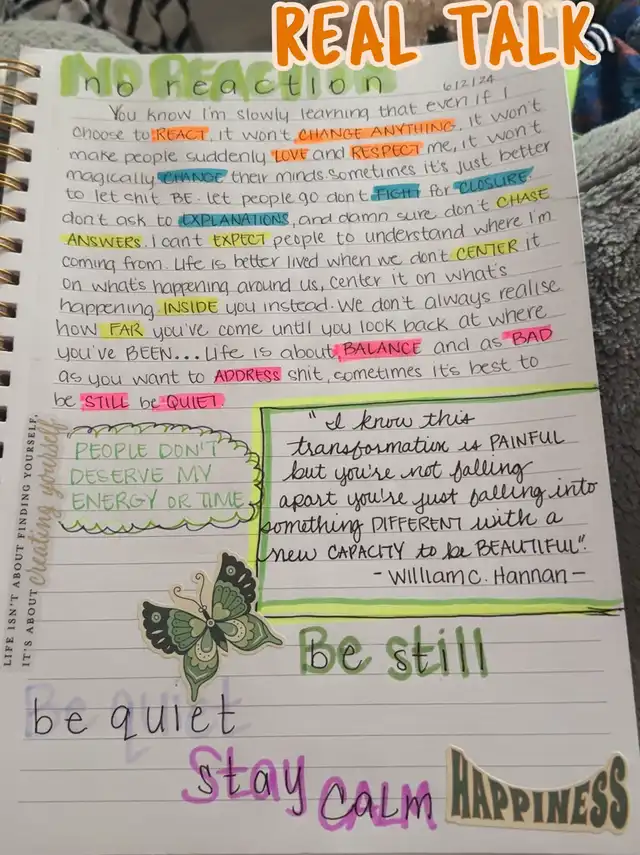 REAL TALK
no reaction
6/2/24
You know I'm slowly learning that even if I
choose to REACT, it won't CHANGE ANYTHING, it won't
make people suddenly LOVE and RESPECT me, it won't
magically CHANGE their minds sometimes it's just better
to let shit BE. let people go don't FIGHT for CLOSURE
don't ask to EXPLANATIONS, and damn sure don't CHASE
ANSWERS. I can't EXPECT people to understand where I'm
coming from. Life is better lived when we don't CENTER it
on what's happening around us, center it on what's
happening INSIDE you instead. We don't always realise
how FAR you've come until you look back at where
you've BEEN... Life is about BALANCE and as BAD
as you want to ADDRESS shit, sometimes it's best to
be STILL be QUIET
LIFE ISN'T ABOUT FINDING YOURSELF,
IT'S ABOUT creating yourself
PEOPLE DON'T
DESERVE MY
ENERGY OR TIME
"I know this
transformation is PAINFUL
but you're not falling
apart you're just falling into
something DIFFERENT with a
new CAPACITY to be BEAUTIFUL".
- William C. Hannan -
Be still
be quiet
Stay Calm
HAPPINESS